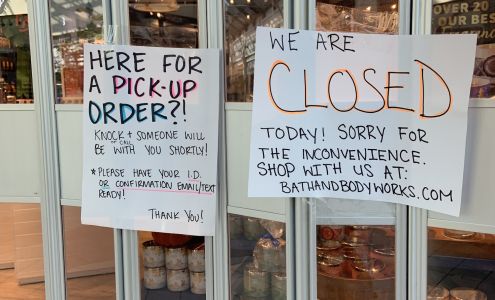 HERE FOR
A PICK-UP
ORDER?!
KNOCK + SOMEONE WILL
OR CALL
BE WITH YOU SHORTLY!
* PLEASE HAVE YOUR I.D.
OR CONFIRMATION EMAIL/TEXT
READY!
THANK YOU!
WE ARE
CLOSED
TODAY! SORRY FOR
THE INCONVENIENCE.
SHOP WITH US AT:
BATHANDBODYWORKS.COM
OVER 20
OUR BEST